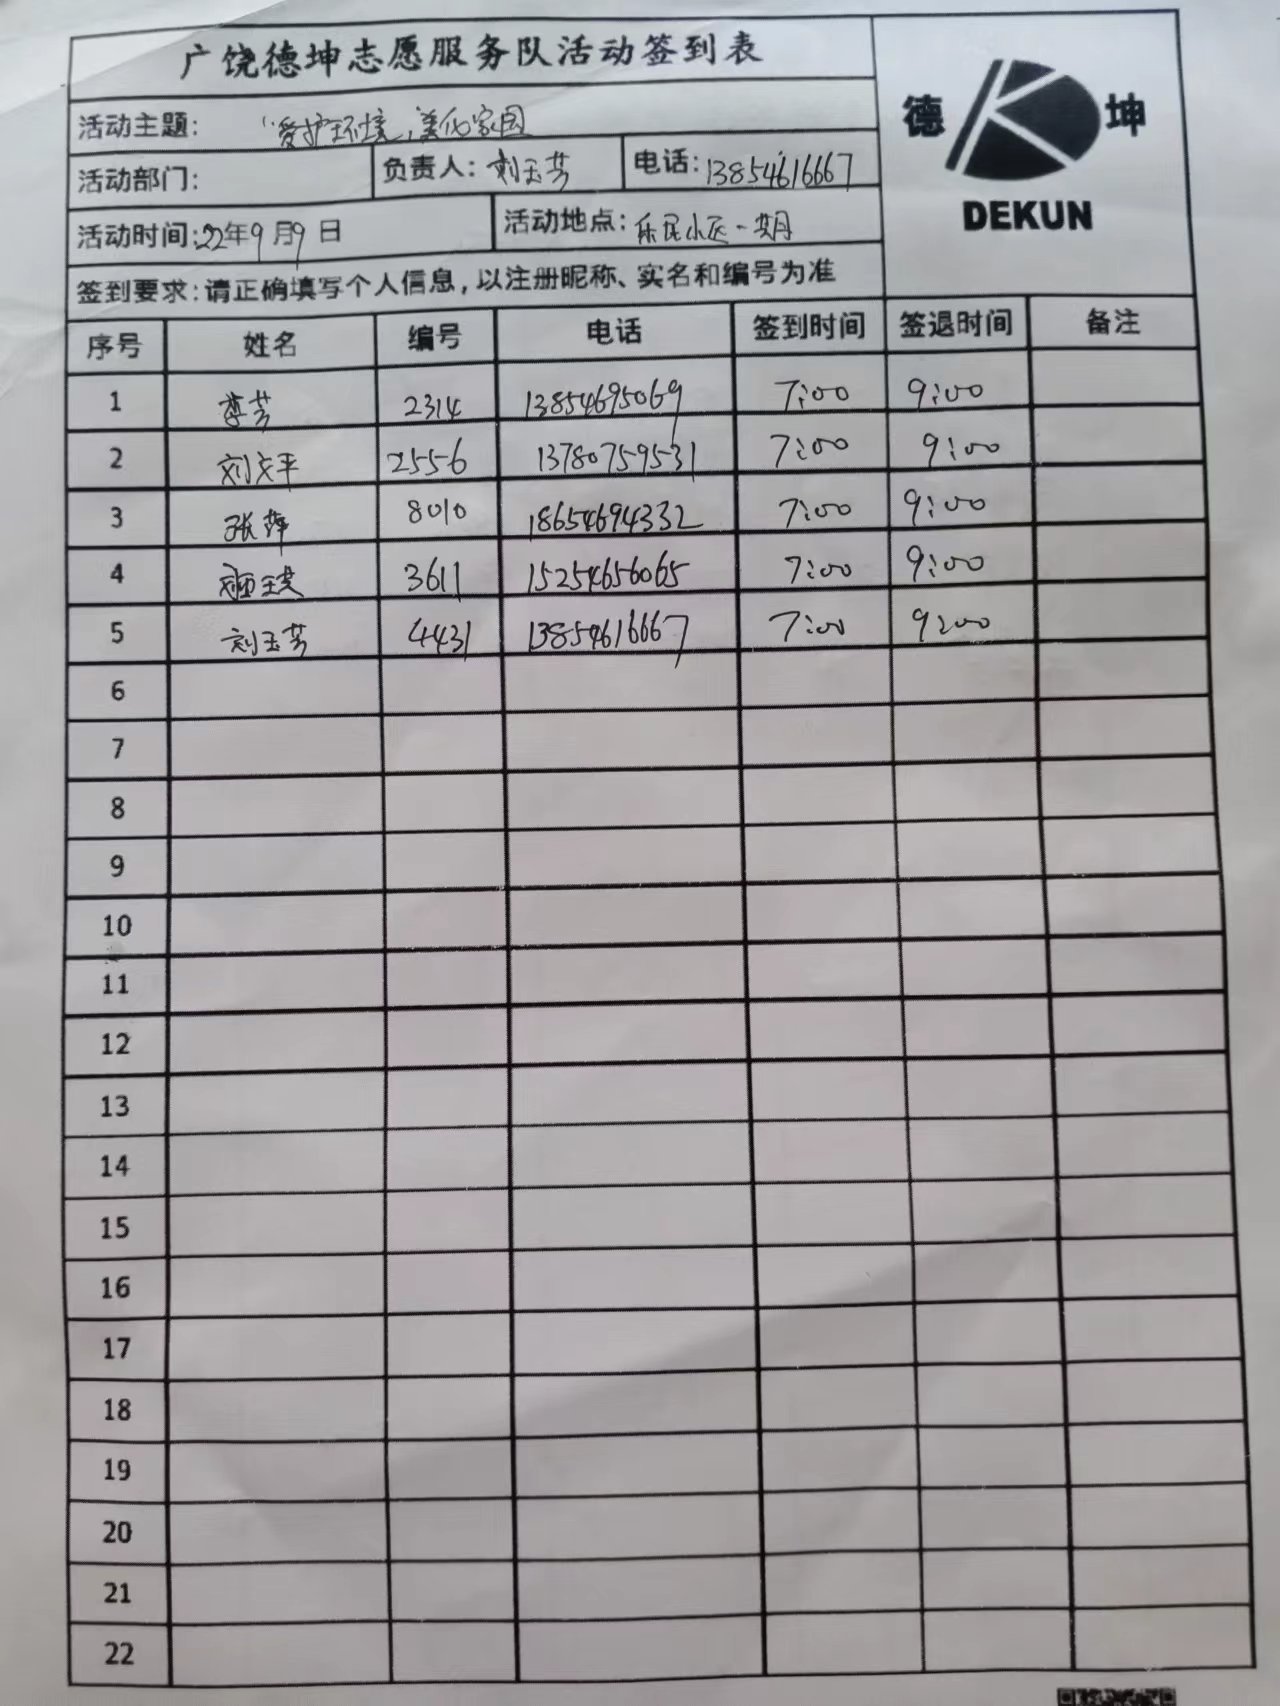 广饶德坤志愿服务队活动签到表
德 坤
DEKUN
活动主题: "爱护环境,美化家园
活动部门: 负责人: 刘玉芳 电话: 13854616667
活动时间: 22年9月9日 活动地点: 乐民小区一期
签到要求:请正确填写个人信息,以注册昵称、实名和编号为准
序号 姓名 编号 电话 签到时间 签退时间 备注
1 李芳 2314 13854695069 7:00 9:00
2 刘文平 2556 13780759531 7:00 9:00
3 张萍 8010 18654694332 7:00 9:00
4 3611 15254656065 7:00 9:00
5 刘玉芳 4431 13854616667 7:00 9:00
6
7
8
9
10
11
12
13
14
15
16
17
18
19
20
21
22